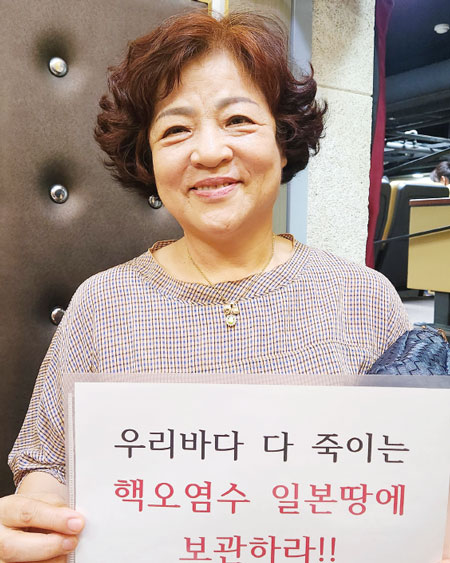 우리바다 다 죽이는
핵오염수 일본땅에
보관하라!!